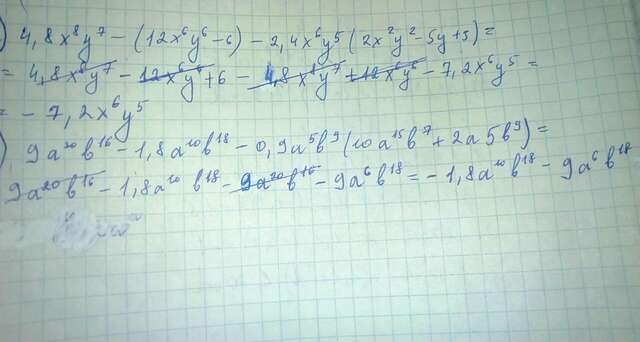 ) 4,8x⁸y⁷ - (12x⁶y⁶ - 6) - 2,4x⁶y⁵ (2x²y² - 5y + 3) =
= 4,8x⁸y⁷ - 12x⁶y⁶ + 6 - 4,8x⁸y⁷ + 12x⁶y⁶ - 7,2x⁶y⁵ =
= - 7,2x⁶y⁵
) 9a²⁰b¹⁶ - 1,8a¹⁰b¹⁸ - 0,9a⁵b⁹ (10a¹⁵b⁷ + 2a5b⁹) =
9a²⁰b¹⁶ - 1,8a¹⁰b¹⁸ - 9a²⁰b¹⁶ - 9a⁶b¹⁸ = - 1,8a¹⁰b¹⁸ - 9a⁶b¹⁸